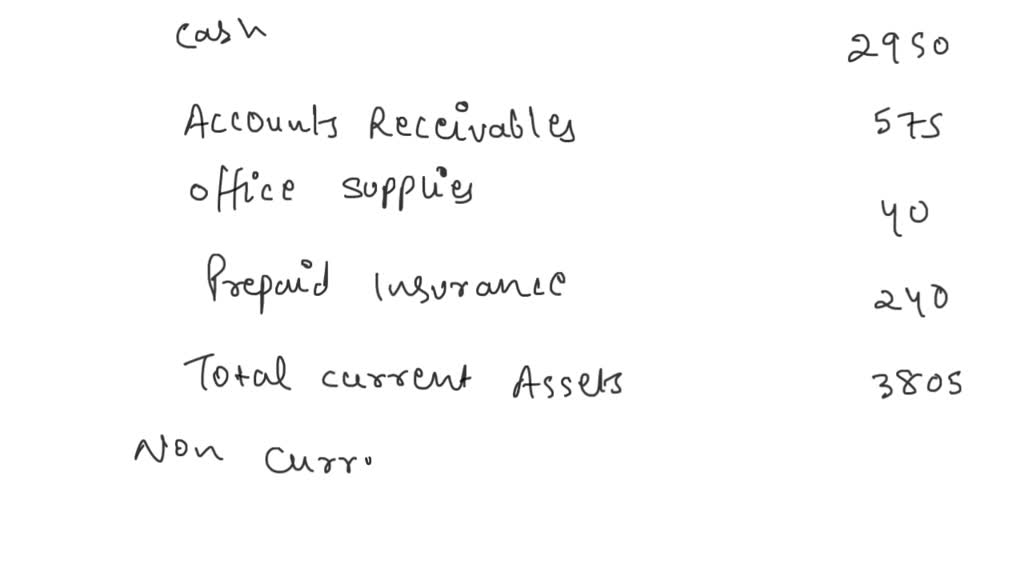 Cash 2950
Accounts Receivables 575
office supplies 40
Prepaid Insurance 240
Total current Assets 3805
Non Curr